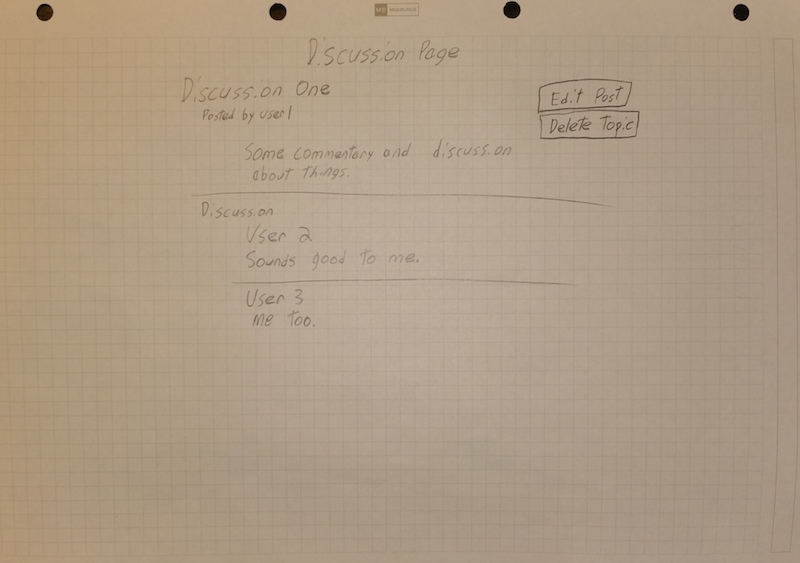 Discussion Page
Discussion One
Posted by user1
Edit Post
Delete Topic
Some commentary and discussion
about things.
Discussion
User 2
Sounds good to me.
User 3
Me too.